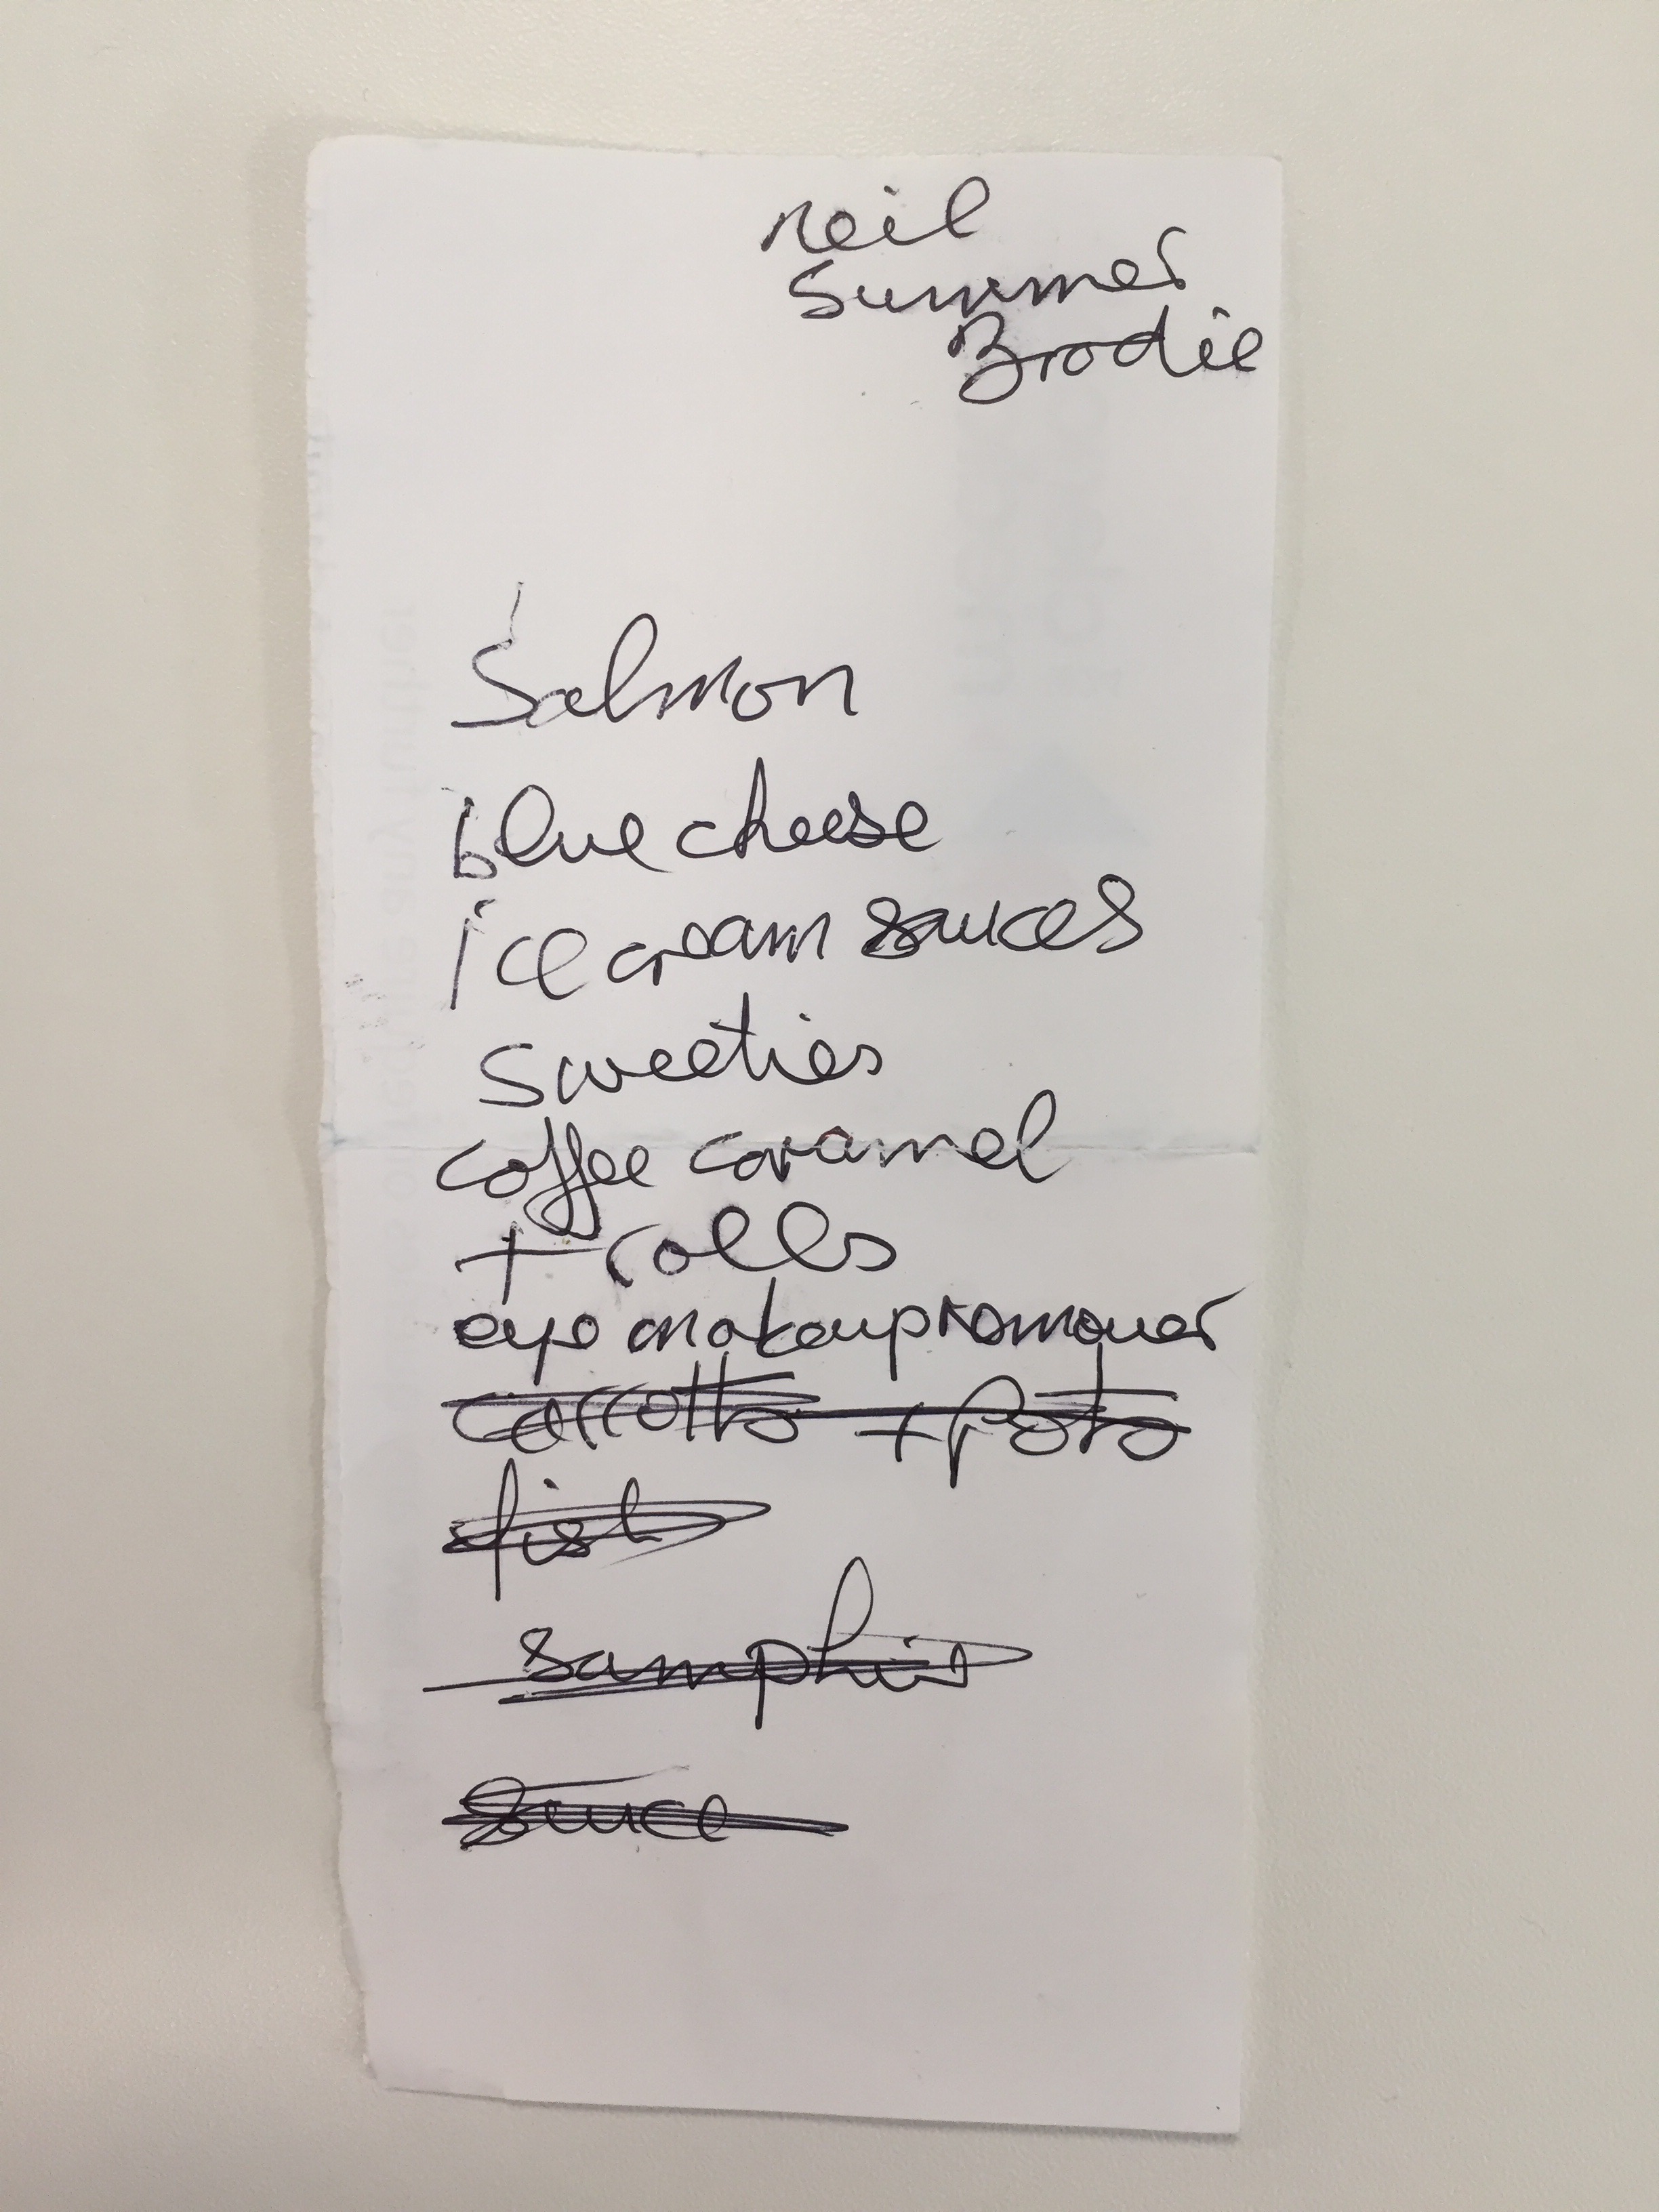 neil
Summer
Brodie
Salmon
blue cheese
ice cream sauces
sweeties
coffee caramel
+ rolls
eye makeup remover
carrotts + pots
fish
samphire
sauce